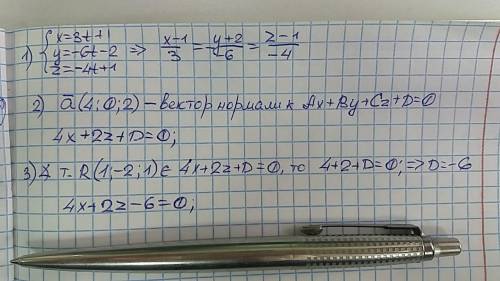 1) { x=3t+1
y=-6t-2
z=-4t+1 => (x-1)/3 = (y+2)/-6 = (z-1)/-4
2) ā(4;0;2) – вектор нормали к Ax+By+Cz+D=0
4x+2z+D=0;
3) ∡ т. R(1;-2;1) ∈ 4x+2z+D=0, то 4+2+D=0; => D=-6
4x+2z-6=0;